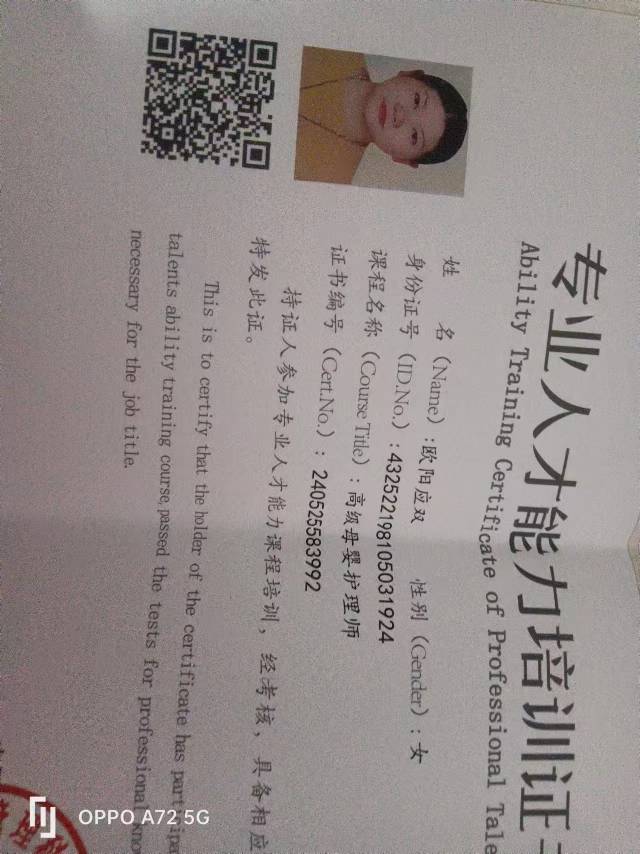 专业人才能力培训证
Ability Training Certificate of Professional Tale
姓 名（Name）:欧阳应双 性别（Gender）: 女
身份证号（ID.No.）: 432522198105031924
课程名称（Course Title）: 高级母婴护理师
证书编号（Cert.No.）: 240525583992
持证人参加专业人才能力课程培训，经考核，具备相应
特发此证。
This is to certify that the holder of the certificate has partipa
talents ability training course, passed the tests for professional kno
necessary for the job title.
OPPO A72 5G